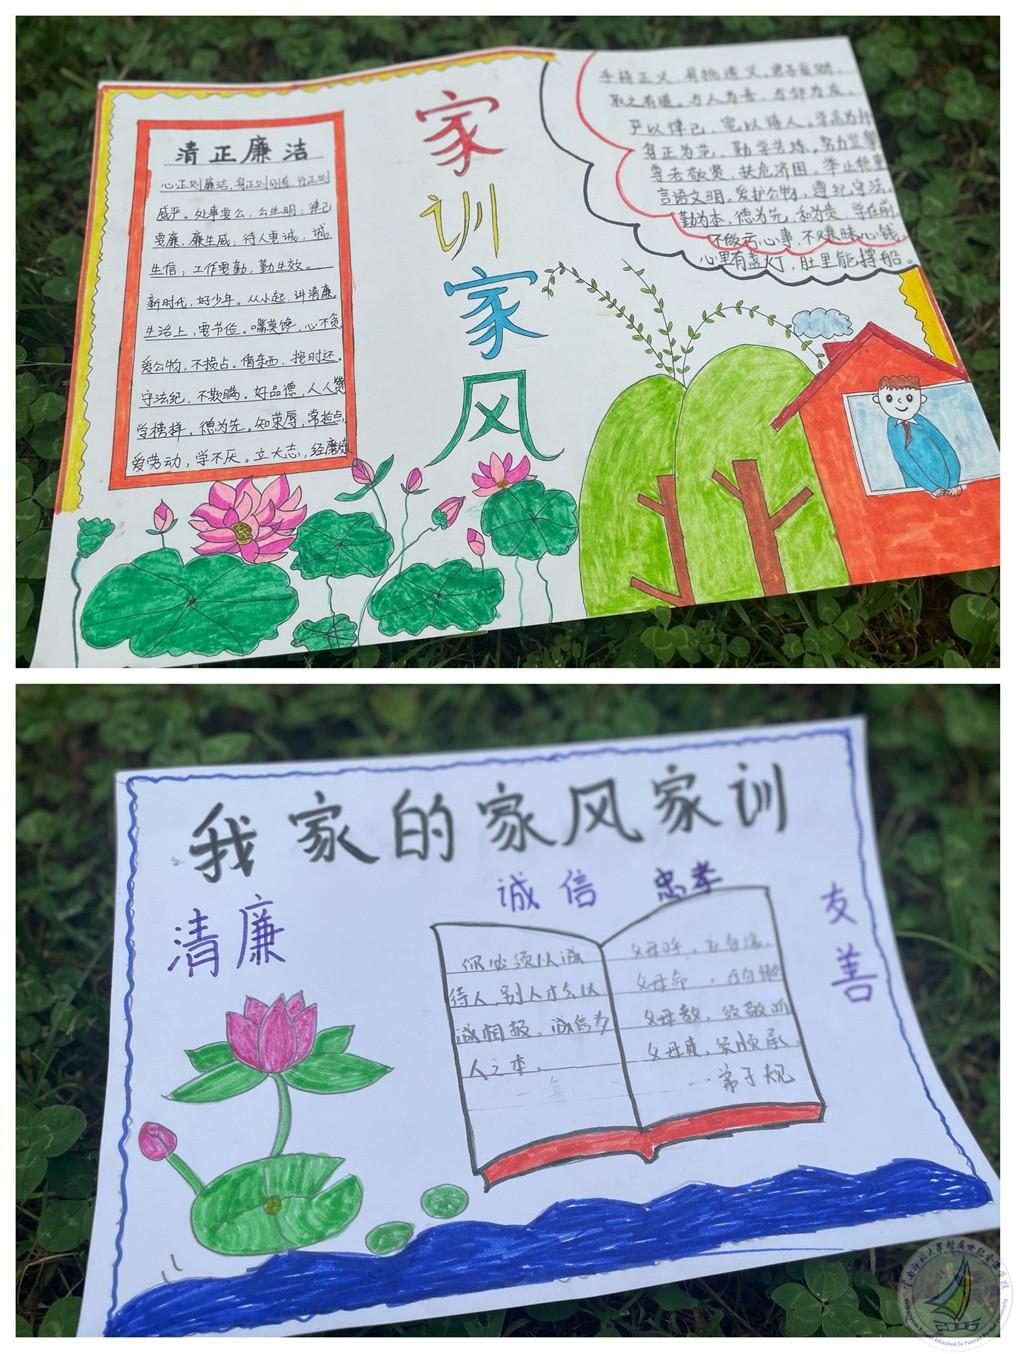 家训家风
清正廉洁
心正则廉洁，身正则
感严。处事要公，公生明；律己
要廉，廉生威；待人要诚，诚
生信；工作要勤，勤生效。
新时代，好少年。从小起，讲清廉。
生活上，要节俭。嘴莫馋，心不贪。
爱公物，不损点。借东西，按时还。
守法纪，不欺瞒。好品德，人人赞
学榜样，德为先。知荣辱，常检点，
爱劳动，学不厌。立大志，经磨炼
手持正义，肩挑道义。君子爱财
取之有道。与人为善，与邻为友。
严以律己，宽以待人。学高为师
身正为范，勤学苦练，努力
尊老敬贤，扶危济困。举止稳重
言语文明。爱护公物，遵纪守法。
勤为本，德为先，和为贵，学在前。
不做亏心事，不赚昧心钱
心里有盏灯，肚里能撑船。
我家的家风家训
清廉
诚信 忠孝
友善
你必须以诚
待人，别人才会以
诚相报。诚信为
人之本。
父母呼，应勿缓。
父母命，行勿懒
父母教，须敬听
父母责，须顺承。
—弟子规